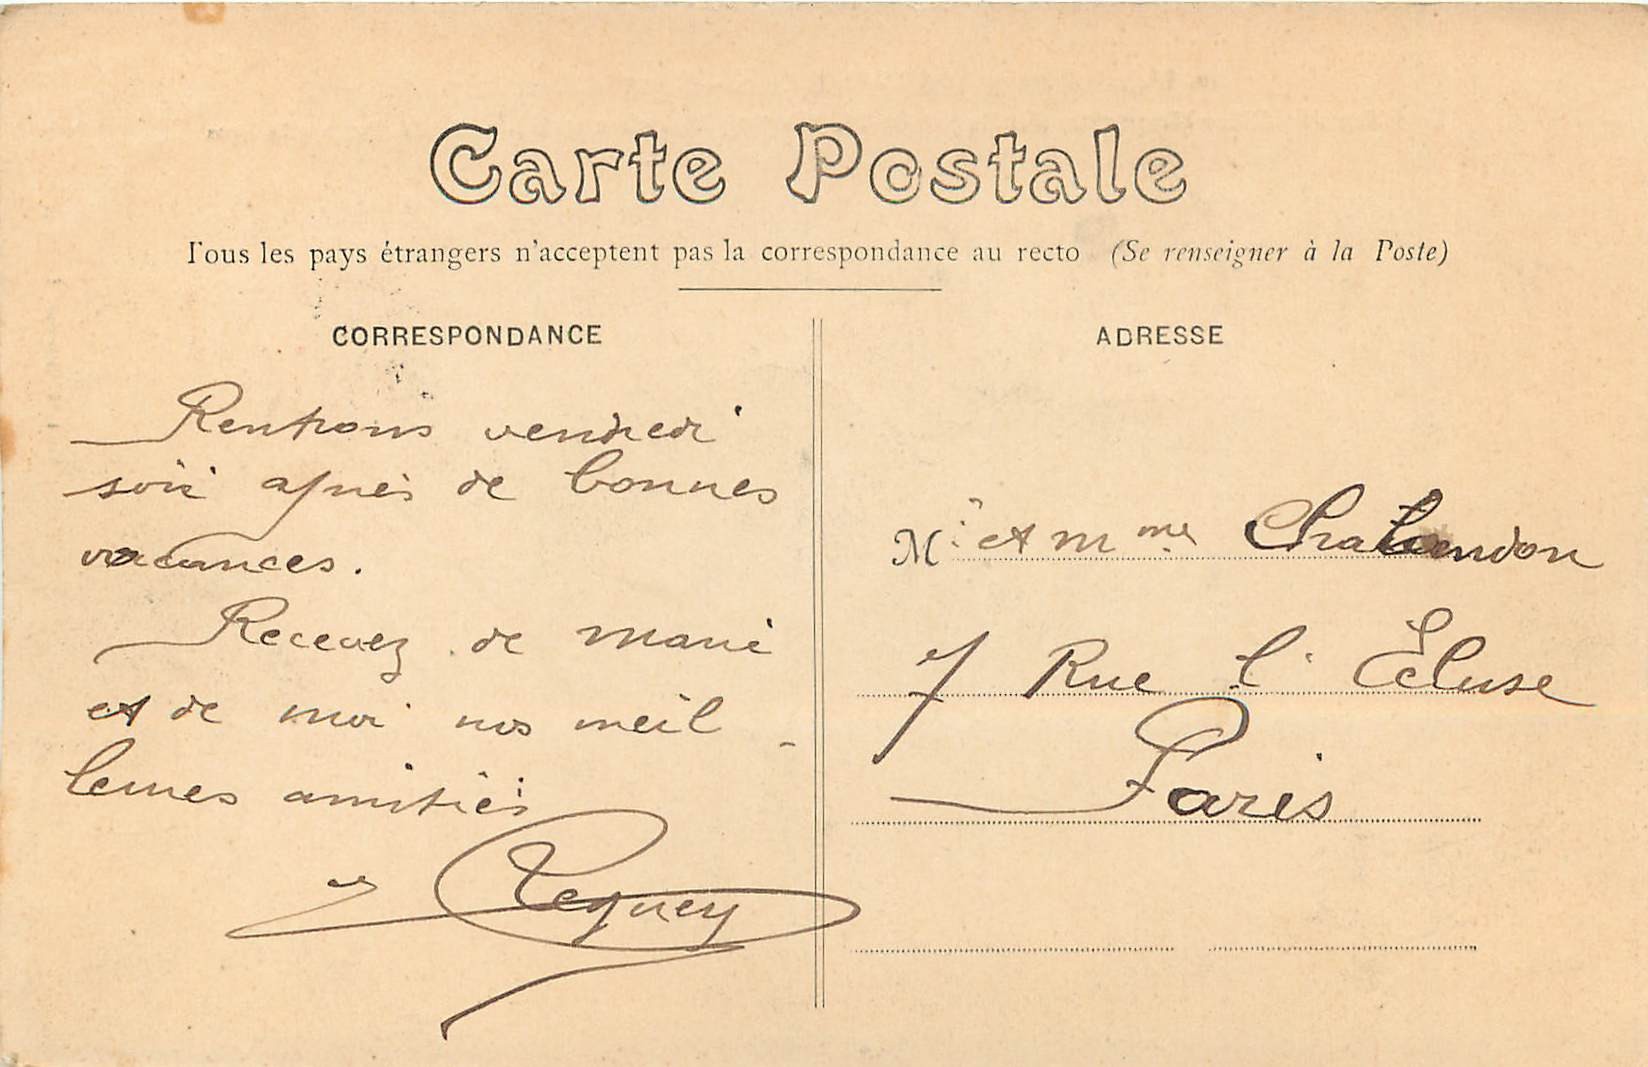 Carte Postale
Tous les pays étrangers n'acceptent pas la correspondance au recto (Se renseigner à la Poste)
CORRESPONDANCE
Rentrons vendredi
soir après de bonnes
vacances.
Recevez de Marie
et de moi nos meil-
leures amitiés
ADRESSE
Mr et Mme
7 Rue l'Écluse
Paris